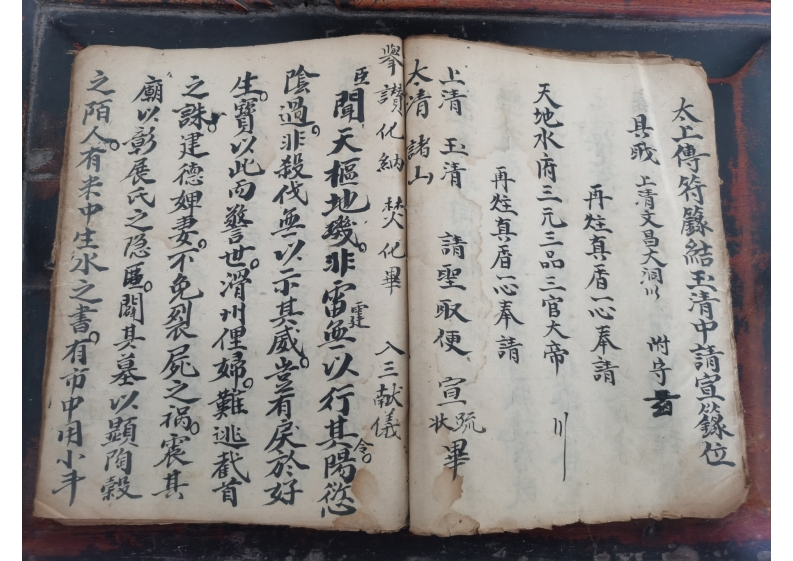 太上傳符籙結玉清中請宣籙位
具戝 上清文昌大洞川 附字
再炷真香一心奉請
天地水府三元三品三官大帝 川
再炷真香一心奉請
上清 玉清 請聖取便 宣疏状畢
太清 諸山
舉讚化納 焚化畢 入三献儀
臣聞天樞地機。非雷霆無以行其陽愆
陰過。非殺伐無以示其威令。豈有戾於好
生。寳以此而警世。滑州俚婦。難逃截首
之誅。建德婢妻。不免裂屍之祸。震其
廟以彰展氏之隐匿。闢其墓以顕陶穀
之陌人。有米中生水之書。有市中用小斗